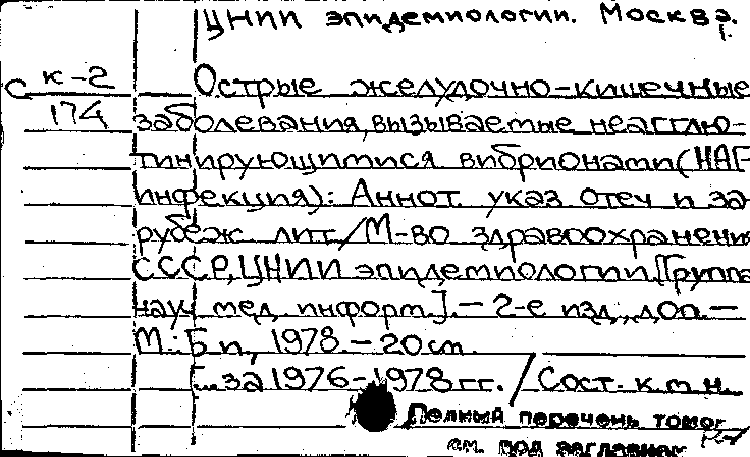 ЦНИИ эпидемиологии. Москва.
С к-2 Острые желудочно-кишечные
174 заболевания, вызываемые неагглю-
тинирующимися вибрионами (НАГ
инфекция): Аннот. указ. отеч и за
рубеж лит./М-во здравоохранени
СССР, ЦНИИ эпидемиологии, [Группа
науч мед. информ.]. - 2-е изд., доп. -
М.: Б. и., 1978. - 20 см.
[...за 1976-1978 гг. / Сост. к.м.н.
Полный перечень томог
см. под заглавием